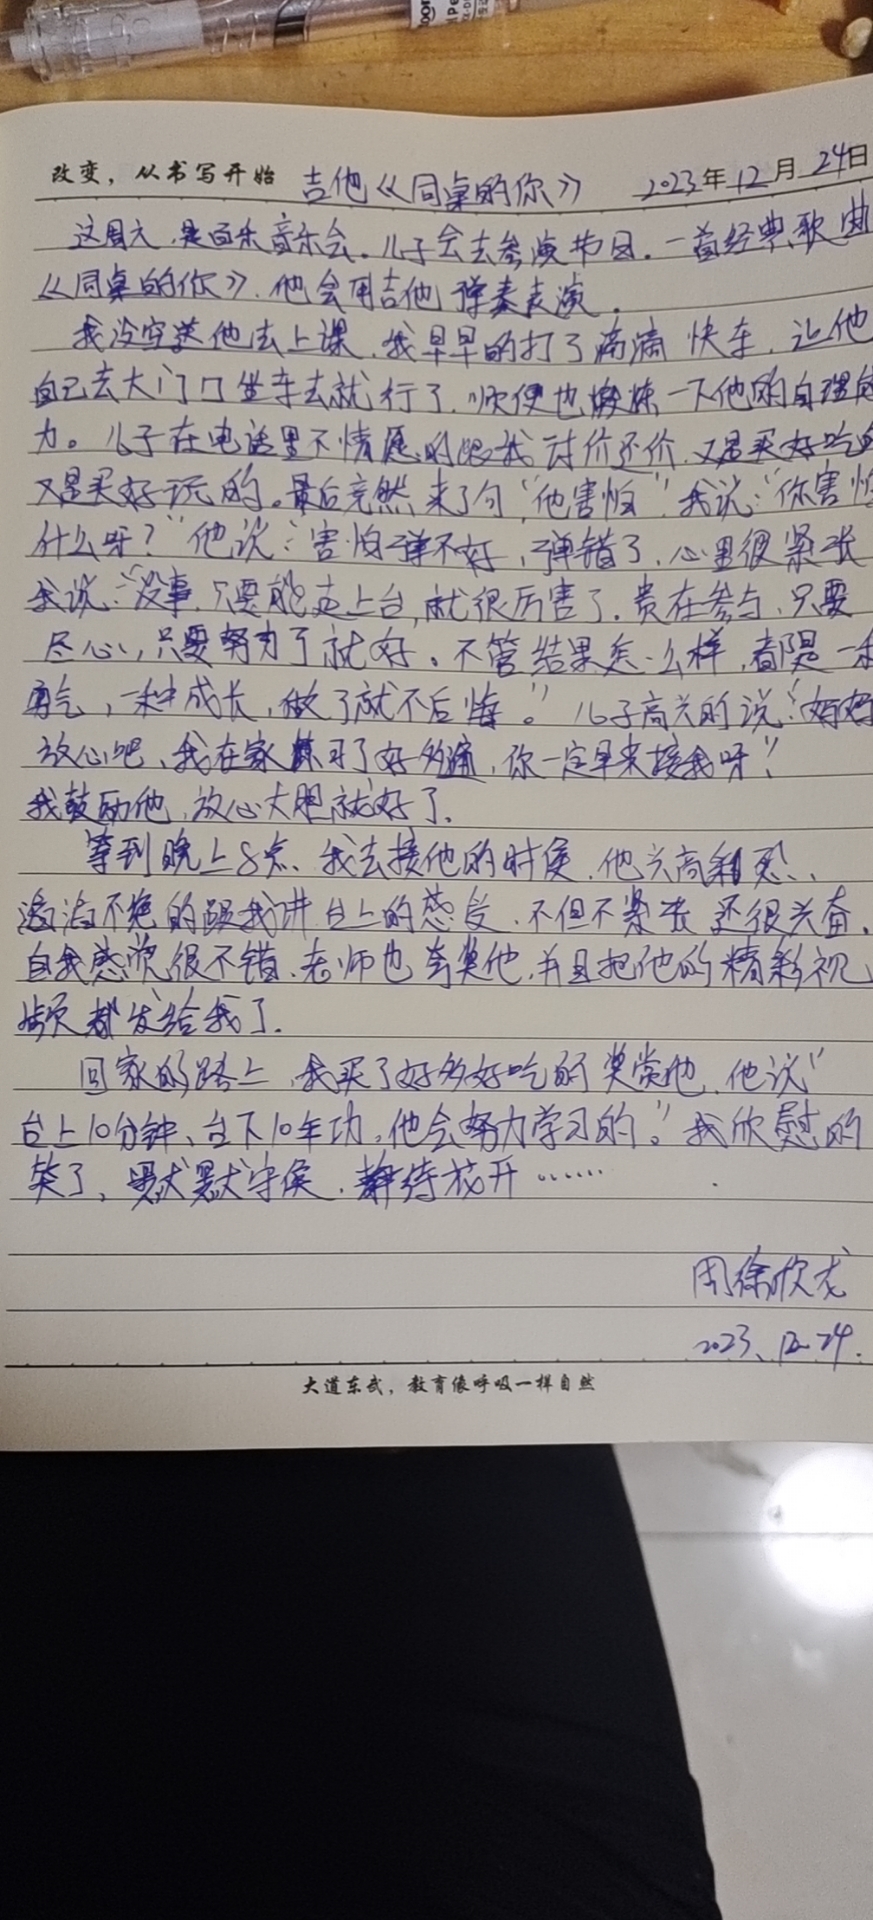 改变，从书写开始 吉他《同桌的你》 2023年12月24日
这周六，是百乐音乐会。儿子会去参演节目。一首经典歌曲
《同桌的你》，他会用吉他弹奏表演。
我没空送他去上课，我早早的打了滴滴快车，让他
自己去大门口坐车去就行了，顺便也锻炼一下他的自理能
力。儿子在电话里不情愿的跟我讨价还价，又是买好吃的
又是买好玩的。最后竟然来了句“他害怕”我说：“你害怕
什么呀？”他说：害怕弹不好，弹错了，心里很紧张
我说：“没事，只要能走上台，就很厉害了。贵在参与，只要
尽心，只要努力了就好。不管结果怎么样，都是一种
勇气，一种成长，做了就不后悔。”儿子高兴的说：“好好
放心吧，我在家练习了好多遍，你一定早来接我呀！”
我鼓励他，放心大胆就好了。
等到晚上8点、我去接他的时候，他兴高彩烈、
滔滔不绝的跟我讲台上的感受，不但不紧张还很兴奋，
自我感觉很不错，老师也夸奖他，并且把他的精彩视
频都发给我了。
回家的路上，我买了好多好吃的奖赏他，他说“
台上10分钟、台下10年功，他会努力学习的。”我欣慰的
笑了，默默守候，静待花开……
周徐欣龙
2023、12-24.
大道东武，教育像呼吸一样自然